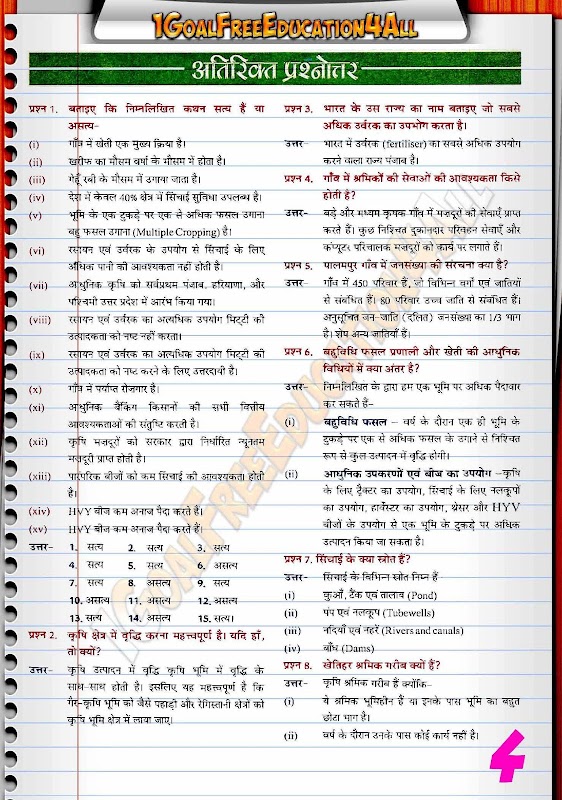 1GoalFreeEducation4All
अतिरिक्त प्रश्नोत्तर
प्रश्न 1. बताइए कि निम्नलिखित कथन सत्य हैं या
असत्य-
(i) गाँव में खेती एक मुख्य क्रिया है।
(ii) खरीफ का मौसम वर्षा के मौसम में होता है।
(iii) गेहूँ रबी के मौसम में उगाया जाता है।
(iv) देश में केवल 40% क्षेत्र में सिंचाई सुविधा उपलब्ध है।
(v) भूमि के एक टुकड़े पर एक से अधिक फसल उगाना
बहु फसल उगाना (Multiple Cropping) है।
(vi) रसायन एवं उर्वरक के उपयोग से सिंचाई के लिए
अधिक पानी की आवश्यकता नहीं होती है।
(vii) आधुनिक कृषि को सर्वप्रथम पंजाब, हरियाणा, और
पश्चिमी उत्तर प्रदेश में आरंभ किया गया।
(viii) रसायन एवं उर्वरक का अत्यधिक उपयोग मिट्टी की
उत्पादकता को नष्ट नहीं करता।
(ix) रसायन एवं उर्वरक का अत्यधिक उपयोग मिट्टी की
उत्पादकता को नष्ट करने के लिए उत्तरदायी है।
(x) गाँव में पर्याप्त रोजगार है।
(xi) आधुनिक बैंकिंग किसानों की सभी वित्तीय
आवश्यकताओं की संतुष्टि करती है।
(xii) कृषि मजदूरों को सरकार द्वारा निर्धारित न्यूनतम
मजदूरी प्राप्त होती है।
(xiii) पारंपरिक बीजों को कम सिंचाई की आवश्यकता होती
है।
(xiv) HVY बीज कम अनाज पैदा करते हैं।
(xv) HVY बीज कम अनाज पैदा करते हैं।
उत्तर- 1. सत्य 2. सत्य 3. सत्य
4. सत्य 5. सत्य 6. असत्य
7. सत्य 8. असत्य 9. सत्य
10. असत्य 11. असत्य 12. असत्य
13. सत्य 14. असत्य 15. सत्य।
प्रश्न 2. कृषि क्षेत्र में वृद्धि करना महत्त्वपूर्ण है। यदि हाँ,
तो क्यों?
उत्तर- कृषि उत्पादन में वृद्धि कृषि भूमि में वृद्धि के
साथ-साथ होती है। इसलिए यह महत्त्वपूर्ण है कि
गैर-कृषि भूमि को जैसे पहाड़ों और रेगिस्तानी क्षेत्रों को
कृषि भूमि क्षेत्र में लाया जाए।
प्रश्न 3. भारत के उस राज्य का नाम बताइए जो सबसे
अधिक उर्वरक का उपभोग करता है।
उत्तर- भारत में उर्वरक (fertiliser) का सबसे अधिक उपयोग
करने वाला राज्य पंजाब है।
प्रश्न 4. गाँव में श्रमिकों की सेवाओं की आवश्यकता किसे
होती है?
उत्तर- बड़े और मध्यम कृषक गाँव में मजदूरों की सेवाएँ प्राप्त
करते हैं। कुछ निश्चित दुकानदार परिवहन सेवाएँ और
कंप्यूटर परिचालक मजदूरों को कार्य पर लगाते हैं।
प्रश्न 5. पालमपुर गाँव में जनसंख्या की संरचना क्या है?
उत्तर- गाँव में 450 परिवार हैं, जो विभिन्न वर्गों एवं जातियों
से संबंधित हैं। 80 परिवार उच्च जाति से संबंधित हैं।
अनुसूचित जन-जाति (दलित) जनसंख्या का 1/3 भाग
है। शेष अन्य जातियाँ हैं।
प्रश्न 6. बहुविधि फसल प्रणाली और खेती की आधुनिक
विधियों में क्या अंतर है?
उत्तर- निम्नलिखित के द्वारा हम एक भूमि पर अधिक पैदावार
कर सकते हैं-
(i) बहुविधि फसल – वर्ष के दौरान एक ही भूमि के
टुकड़े पर एक से अधिक फसल के उगाने से निश्चित
रूप से कुल उत्पादन में वृद्धि होगी।
(ii) आधुनिक उपकरणों एवं बीज का उपयोग –कृषि
के लिए ट्रैक्टर का उपयोग, सिंचाई के लिए नलकूपों
का उपयोग, हार्वेस्टर का उपयोग, थ्रेसर और HYV
बीजों के उपयोग से एक भूमि के टुकड़े पर अधिक
उत्पादन किया जा सकता है।
प्रश्न 7. सिंचाई के क्या स्रोत हैं?
उत्तर- सिंचाई के विभिन्न स्रोत निम्न हैं–
(i) कुआँ, टैंक एवं तालाब (Pond)
(ii) पंप एवं नलकूप (Tubewells)
(iii) नदियाँ एवं नहरें (Rivers and canals)
(iv) बाँध (Dams)
प्रश्न 8. खेतिहर श्रमिक गरीब क्यों हैं?
उत्तर- कृषि श्रमिक गरीब हैं क्योंकि-
(i) ये श्रमिक भूमिहीन हैं या इनके पास भूमि का बहुत
छोटा भाग है।
(ii) वर्ष के दौरान उनके पास कोई कार्य नहीं है।
4
1GoalFreeEducation4All